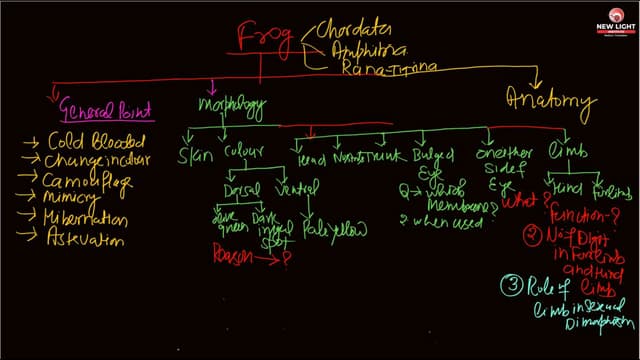 Frog
Chordata
Amphibia
Rana-Tigrina
NEW LIGHT
INSTITUTE
General Point
Morphology
Anatomy
→ Cold Blooded
→ Change in colour
→ Camouflage
→ mimicry
→ Hibernation
→ Astevation
Skin
Colour
Head
Trunk
Bulged
Eye
Q → which
membrane?
? when used
on either
side of
Eye
What?
function - ?
limb
Hind
Forlimb
Dorsal
Ventral
olive
green
Dark
irregular
spot
Pale yellow
Reason → ?
② No. of Digit
in Forlimb
and Hind
limb
③ Role of
limb in sexual
Dimorphism